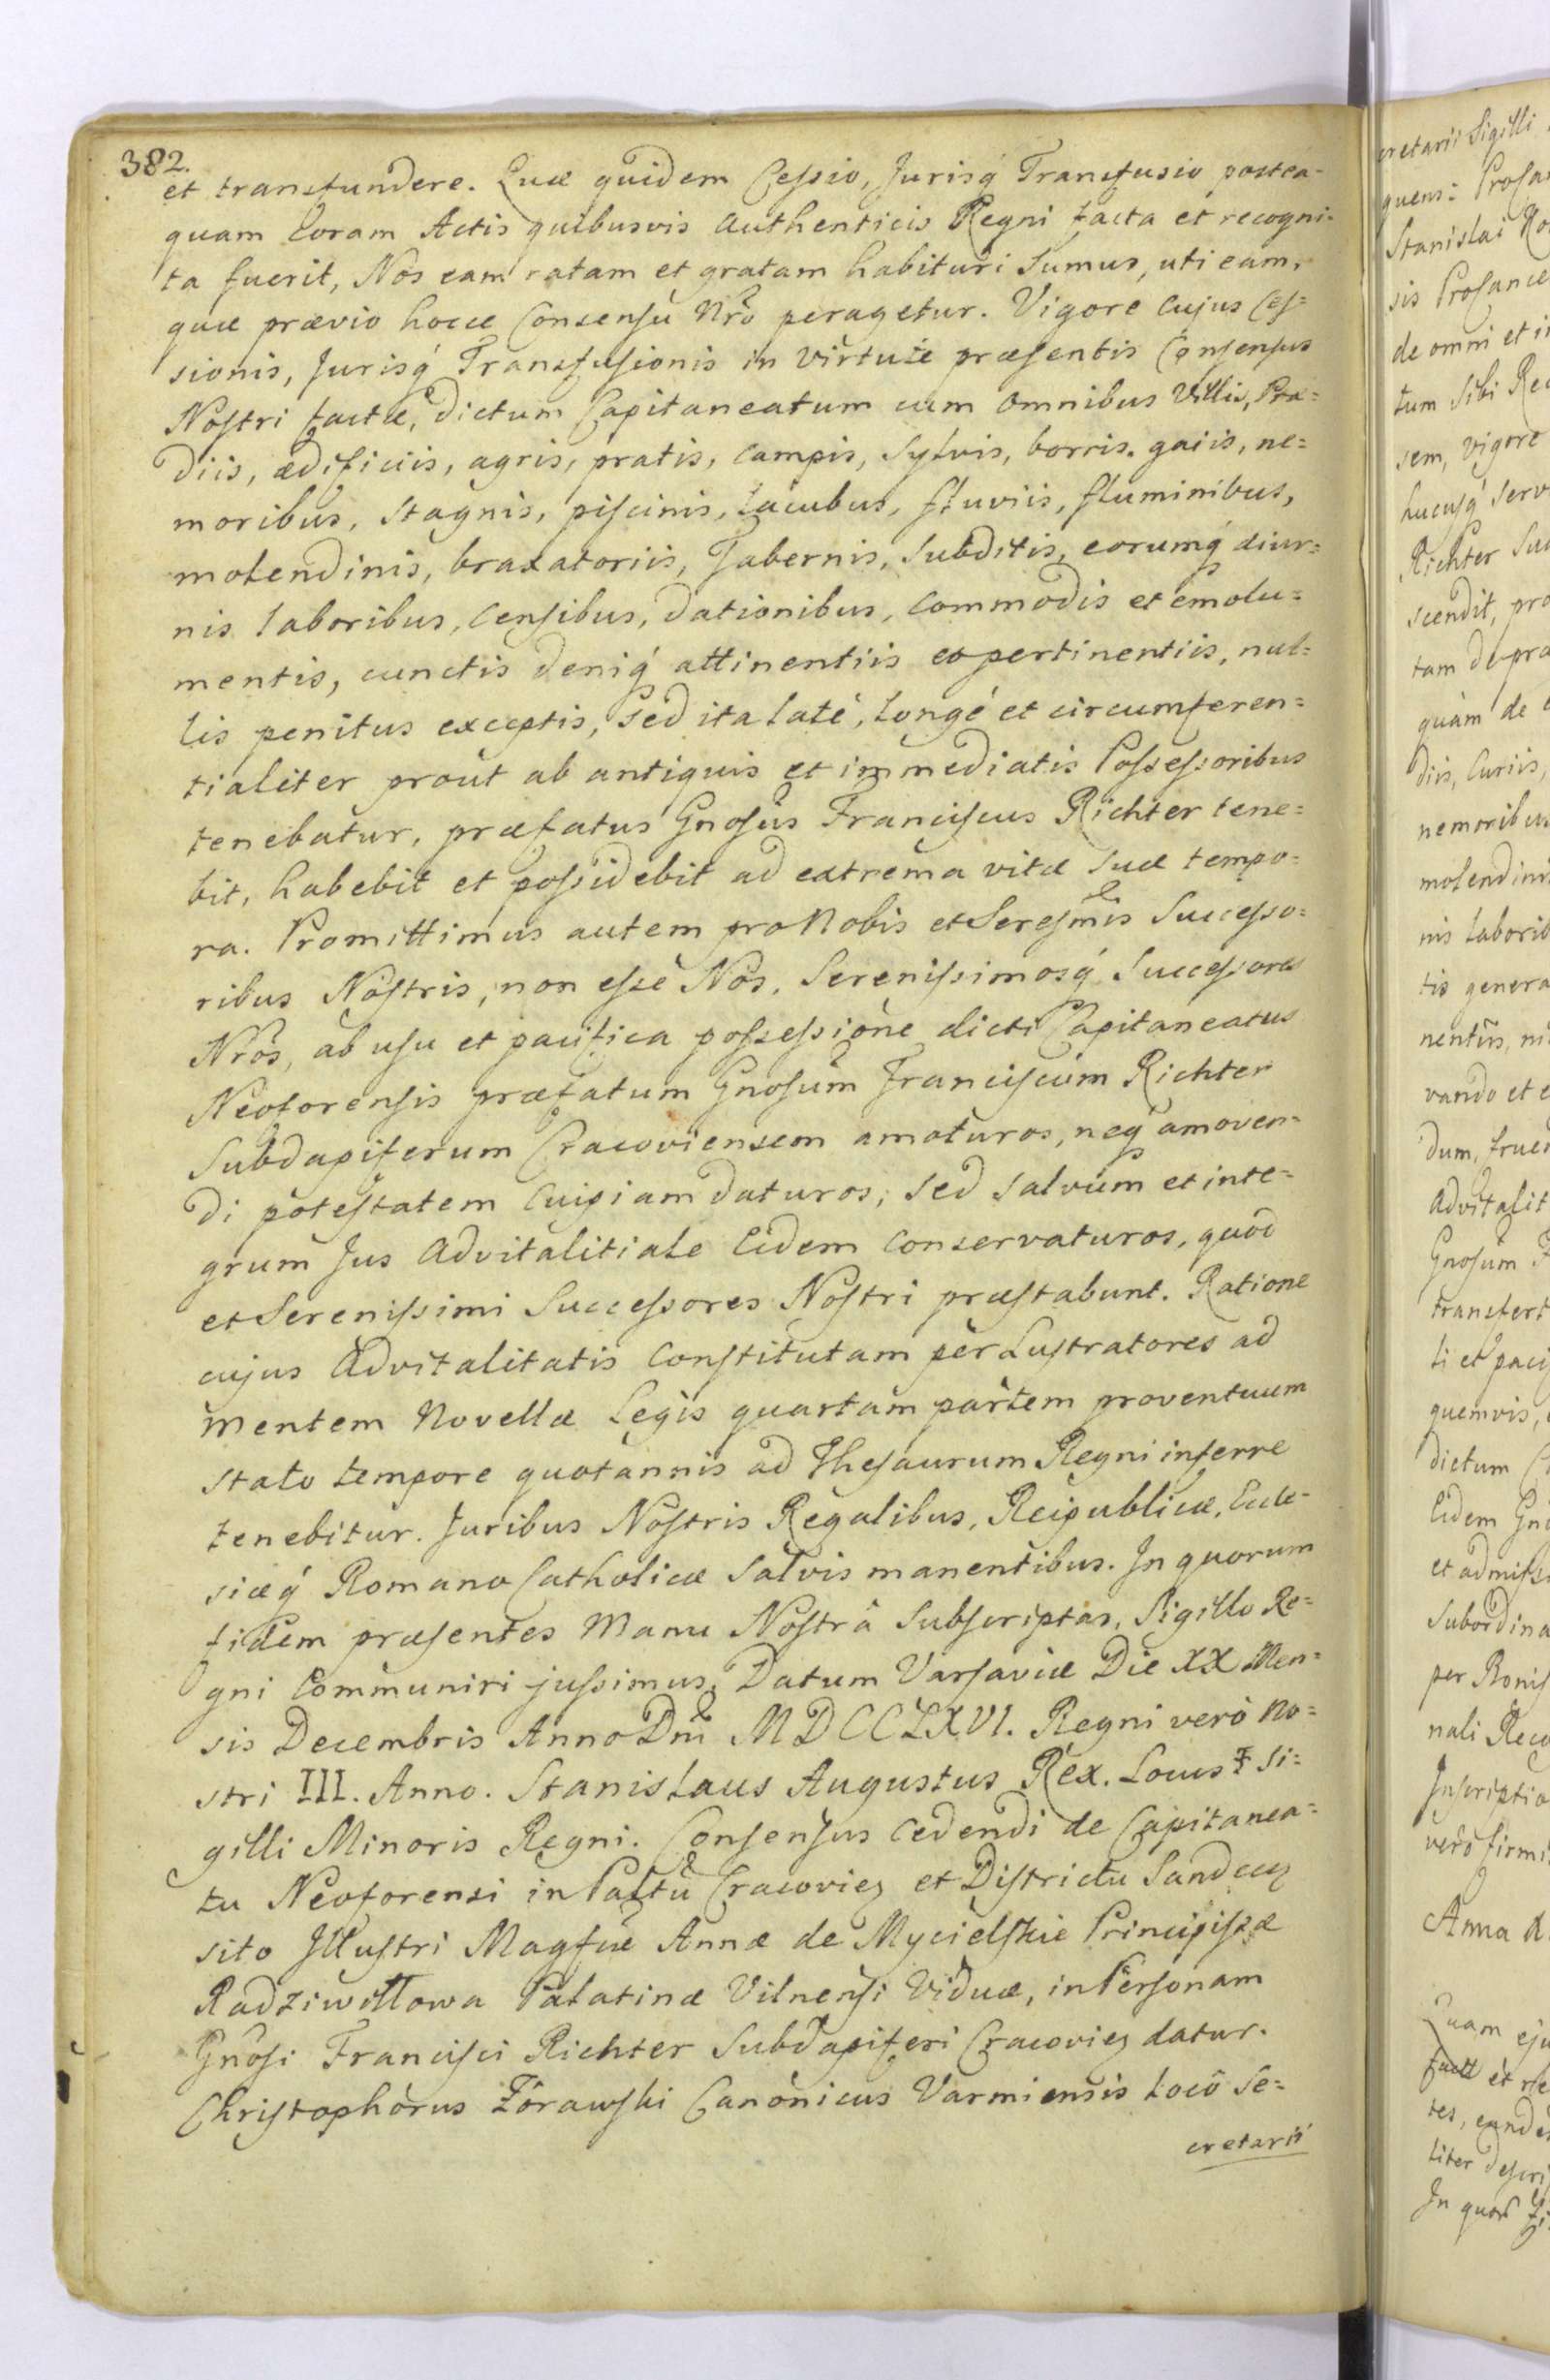 382.
et transfundere. Quæ quidem Cessio, Jurisq́ Transfusio postea-
quam Coram Actis quibusvis Authenticis Regni facta et recogni-
ta fuerit, Nos eam ratam et gratam habituri Sumus, uti eam,
quæ prævio hocce Consensu Nr̃o peragetur. Vigore Cujus Ces=
sionis, Jurisq́ Transfusionis in Virtute præsentis Consensus
Nostri factæ, dictum Capitaneatum cum Omnibus Villis, Præ=
diis, ædificiis, agris, pratis, Campis, Sylvis, borris, gaiis, ne=
moribus, Stagnis, piscinis, Lacubus, fluviis, fluminibus,
molendinis, braxatoriis, Tabernis, Subditis, eorumq́ diur=
nis laboribus, Censibus, dationibus, Commodis et emolu=
mentis, cunctis deniq́ attinentiis et pertinentiis, nul=
lis penitus exceptis, Sed ita laté, longé et circumferen=
tialiter prout ab antiquis et immediatis Possessoribus
tenebatur, præfatus Gnosus Franciscus Richter tene=
bit, habebit et possidebit ad extrema vitæ Suæ tempo=
ra. Promittimus autem pro Nobis et Seresm̃is Successo=
ribus Nostris, non esse Nos, Serenissimosq́ Successores
Nr̃os, ab usu et pacifica possessione dicti Capitaneatus
Neoforensis præfatum Gnosum Franciscum Richter
Subdapiferum Cracoviensem amoturos, neq́ amoven=
di potestatem Cuipiam daturos; Sed Salvum et inte=
grum Jus Advitalitiale Eidem Conservaturos, quod
et Serenissimi Successores Nostri præstabunt. Ratione
cujus Advitalitatis Constitutam per Lustratores ad
mentem Novellæ Legis quartam partem proventuum
stato tempore quotannis ad Thesaurum Regni inferre
tenebitur. Juribus Nostris Regalibus, Reipublicæ, Eccle-
siæq́ Romano Catholicæ Salvis manentibus. In quorum
fidem præsentes Manu Nostrâ Subscriptas, Sigillo Re=
gni Communiri jussimus. Datum Varsaviæ Die XX Men=
sis Decembris Anno Dni MDCCLXVI. Regni verò No=
stri III. Anno. Stanislaus Augustus Rex. Locus Si=
gilli Minoris Regni. Consensus Cedendi de Capitanea=
tu Neoforensi in Paltu Cracovien et Districtu Sandecen
sito Illustri Magfcæ Annæ de Mycielskie Principissæ
Radziwiłłowa Palatinæ Vilnensi Viduæ, in Personam
Gnosi Francisci Richter Subdapiferi Cracovien datur.
Christophorus Żórawski Canonicus Varmiensis Locô Se=
cretarii
cretarii Sigilli
quens:
Stanislai
de omni et
tum Sibi
sem, Vigore
hucusq́
Richter
scendit,
quàm de
diis, Curiis,
nemoribus
molendinis
nis laborib
tis genera
vando et
dum,
Advitalit
Gnosum
transfert
quemvis,
dictum
Eidem
Subordina
nali
Inscriptio
verò
Anna
Quam
et
In